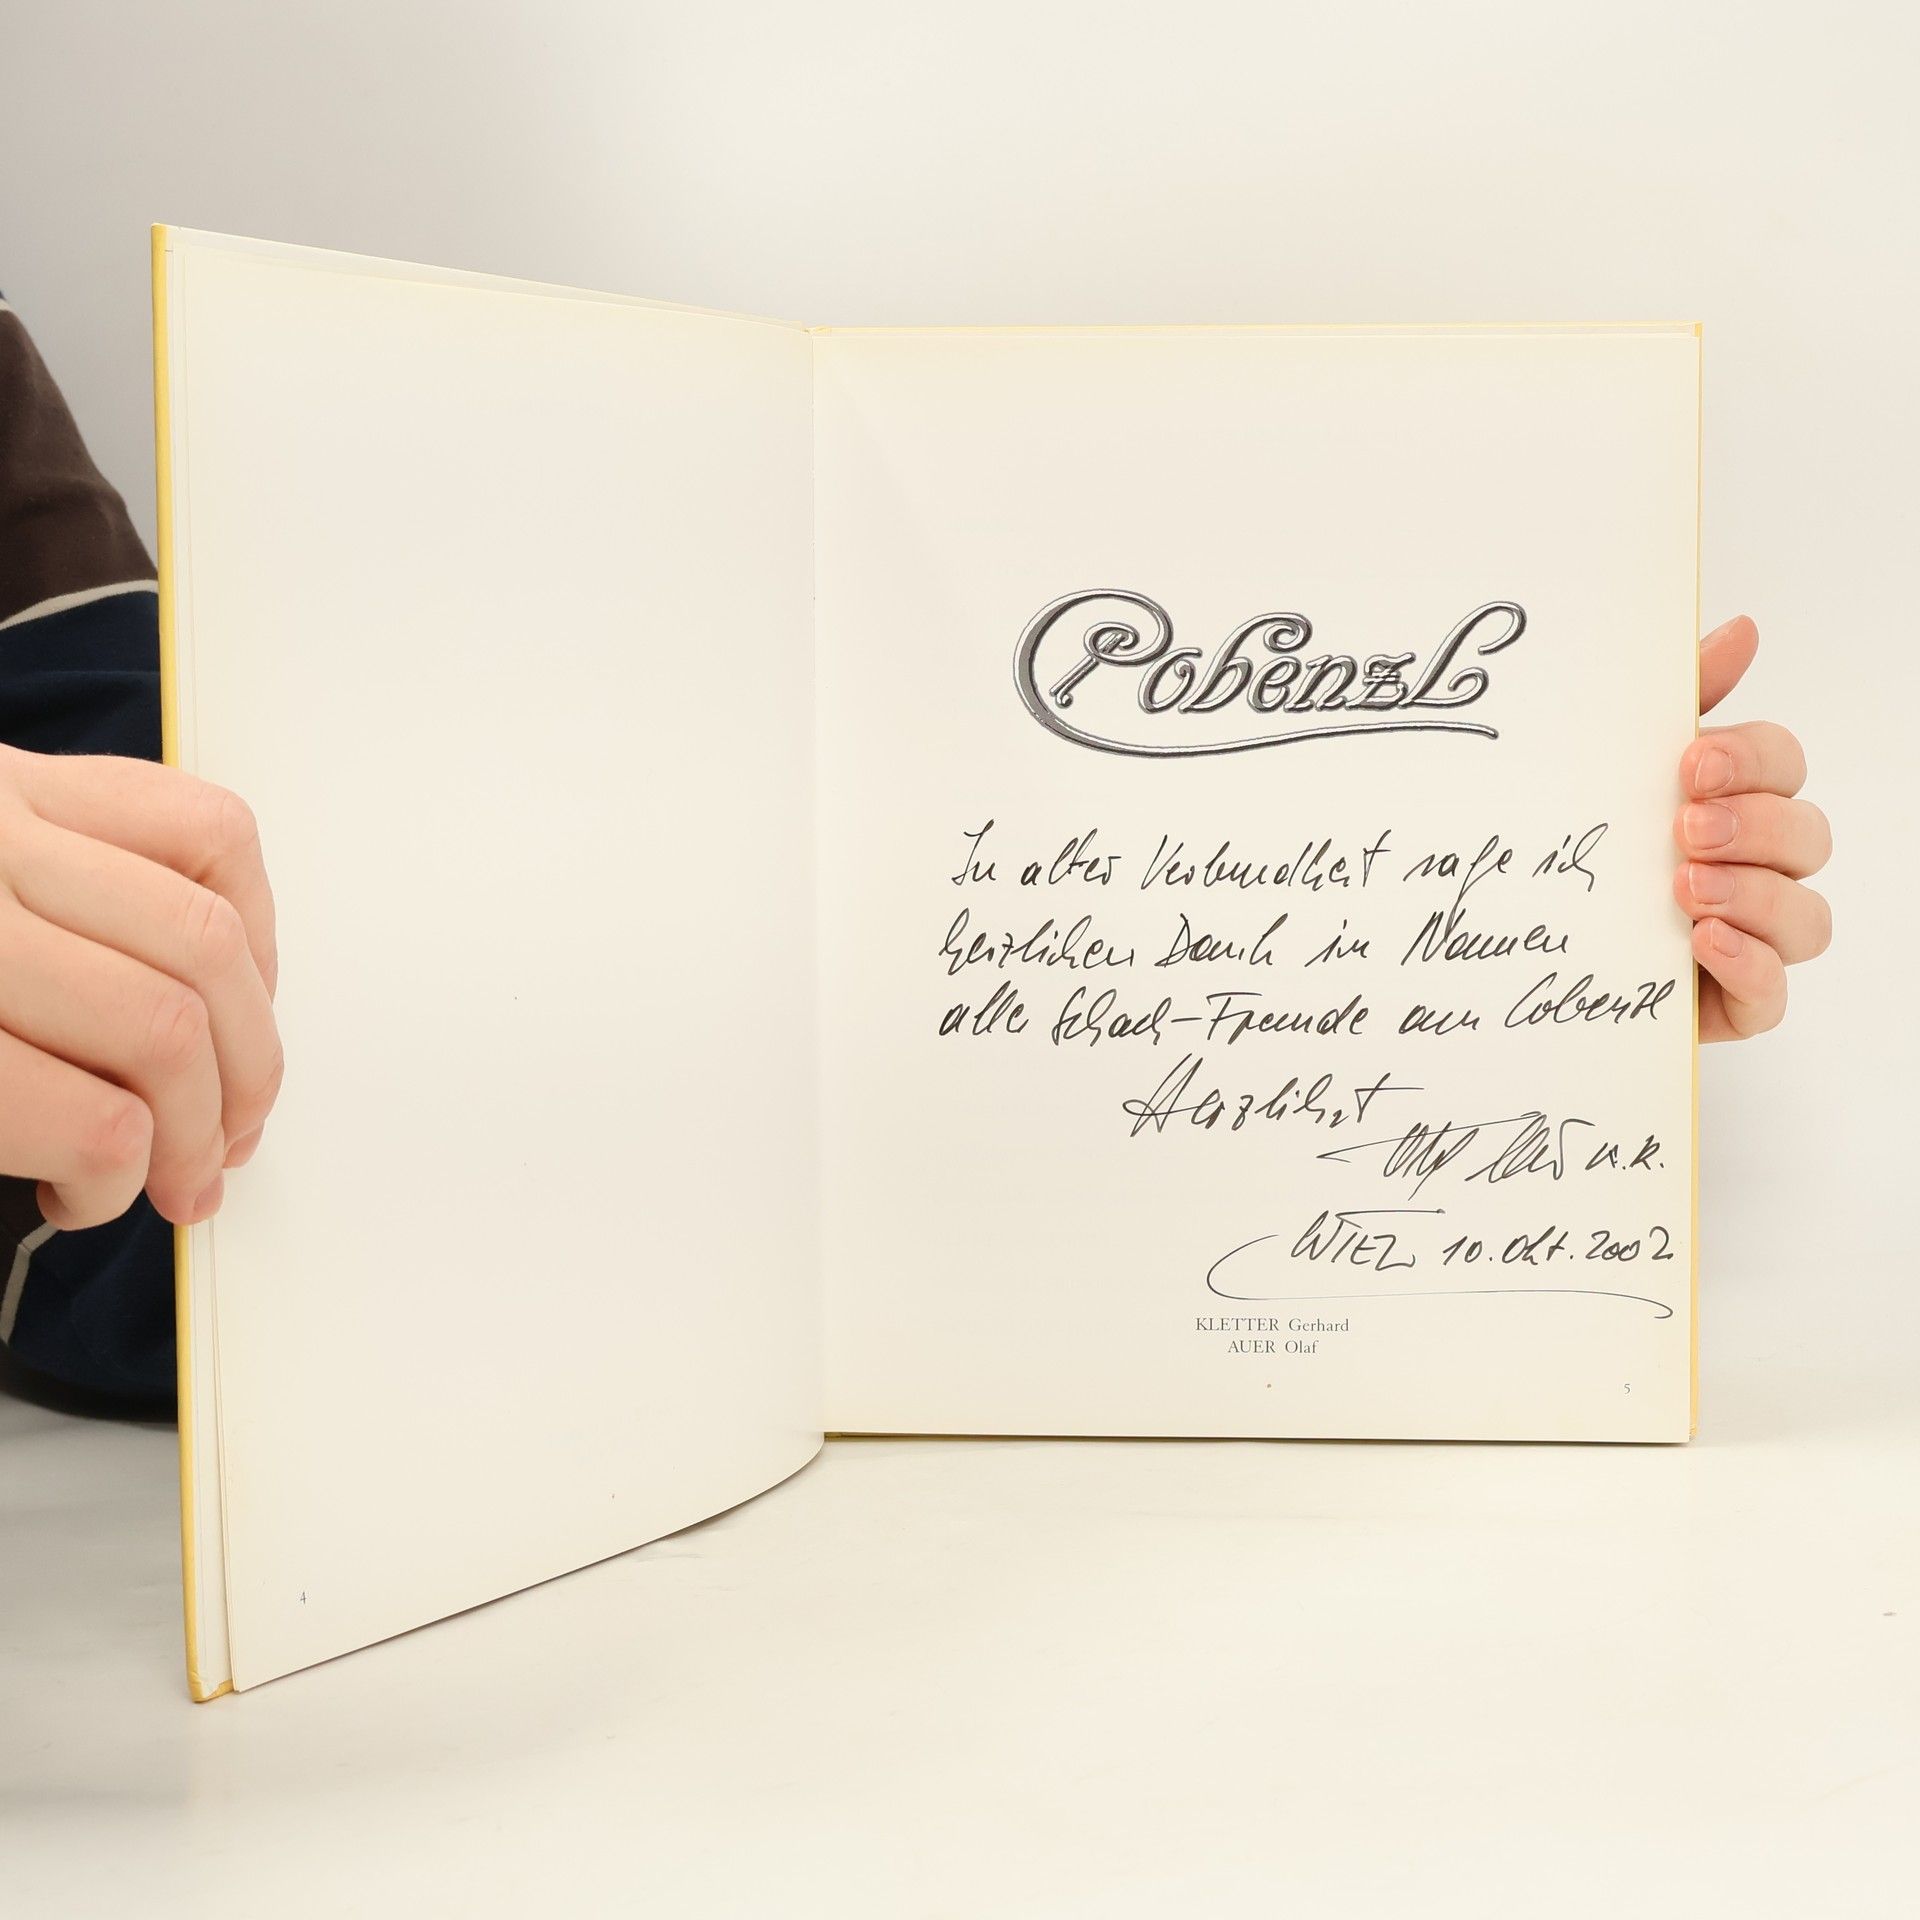 Cobenzl
In alter Verbundheit sage ich
herzlichen Dank im Namen
aller Schach-Freunde am Cobenzl
Herzlichst
WIEN 10. Okt. 2002
KLETTER Gerhard
AUER Olaf
5
4